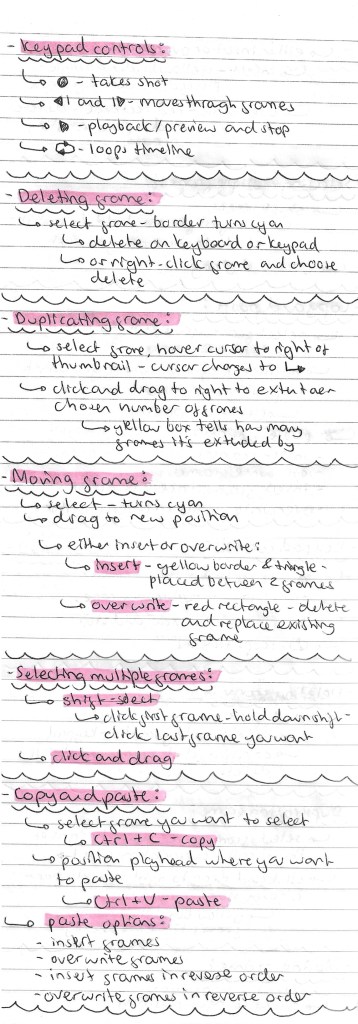 - Keypad controls:
↳ ● - takes shot
↳ ◁| and |▷ - moves through frames
↳ ▷ - playback/preview and stop
↳ - loops timeline
- Deleting frame:
↳ select frame - border turns cyan
↳ delete on keyboard or keypad
↳ or right-click frame and choose
delete
- Duplicating frame:
↳ select frame, hover cursor to right of
thumbnail - cursor changes to ↳
↳ click and drag to right to extent
chosen number of frames
↳ yellow box tells how many
frames it's extended by
- Moving frame:
↳ select - turns cyan
↳ drag to new position
↳ either insert or overwrite:
↳ insert - yellow border & triangle -
placed between 2 frames
↳ overwrite - red rectangle - delete
and replace existing
frame
- Selecting multiple frames:
↳ shift-select
↳ click first frame - hold down shift -
click last frame you want
↳ click and drag
- Copy and paste:
↳ select frame you want to select
↳ Ctrl + C - copy
↳ position playhead where you want
to paste
↳ Ctrl + V - paste
↳ paste options:
- insert frames
- overwrite frames
- insert frames in reverse order
- overwrite frames in reverse order